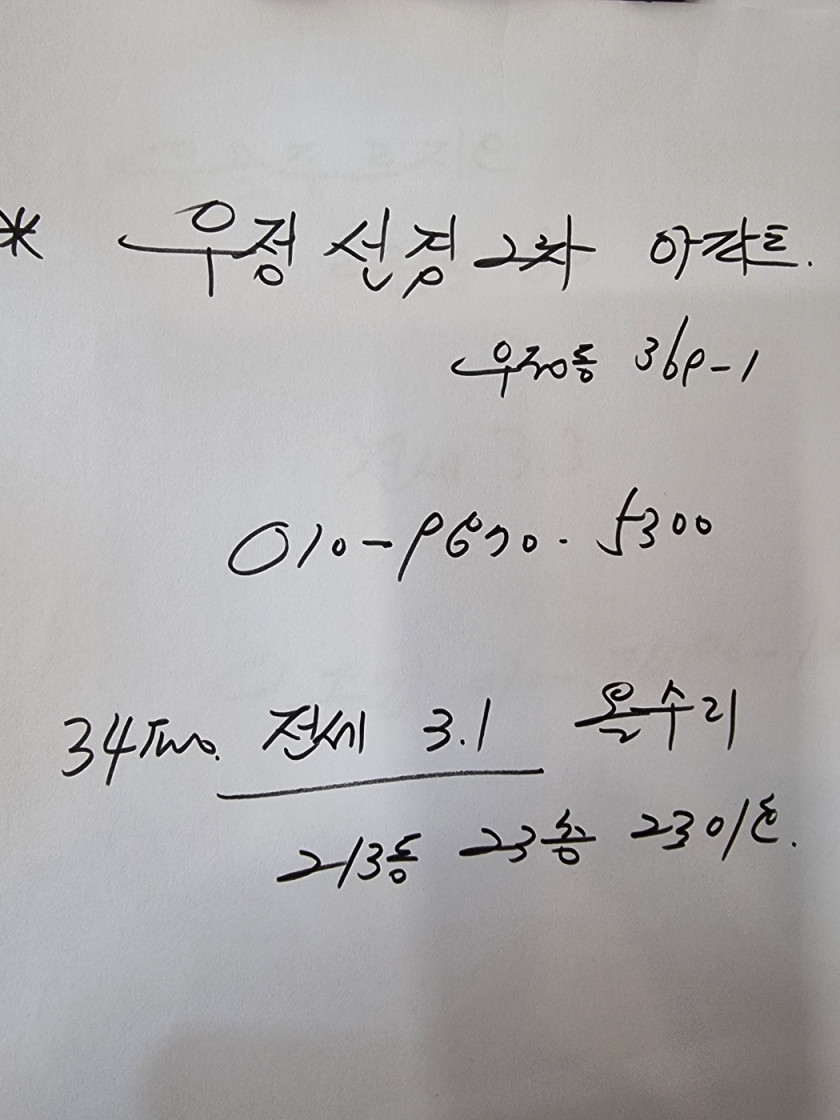 * 우정 선경 2차 아파트.
우정동 369-1
5300
34Two. 전세 3.1 올수리
213동 23층 2301호.